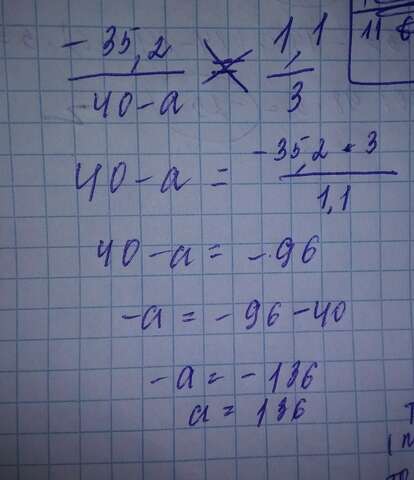 -35,2 / 40-a = 1,1 / 3
40-a = -35,2 • 3 / 1,1
40-a = -96
-a = -96-40
-a = -136
a = 136